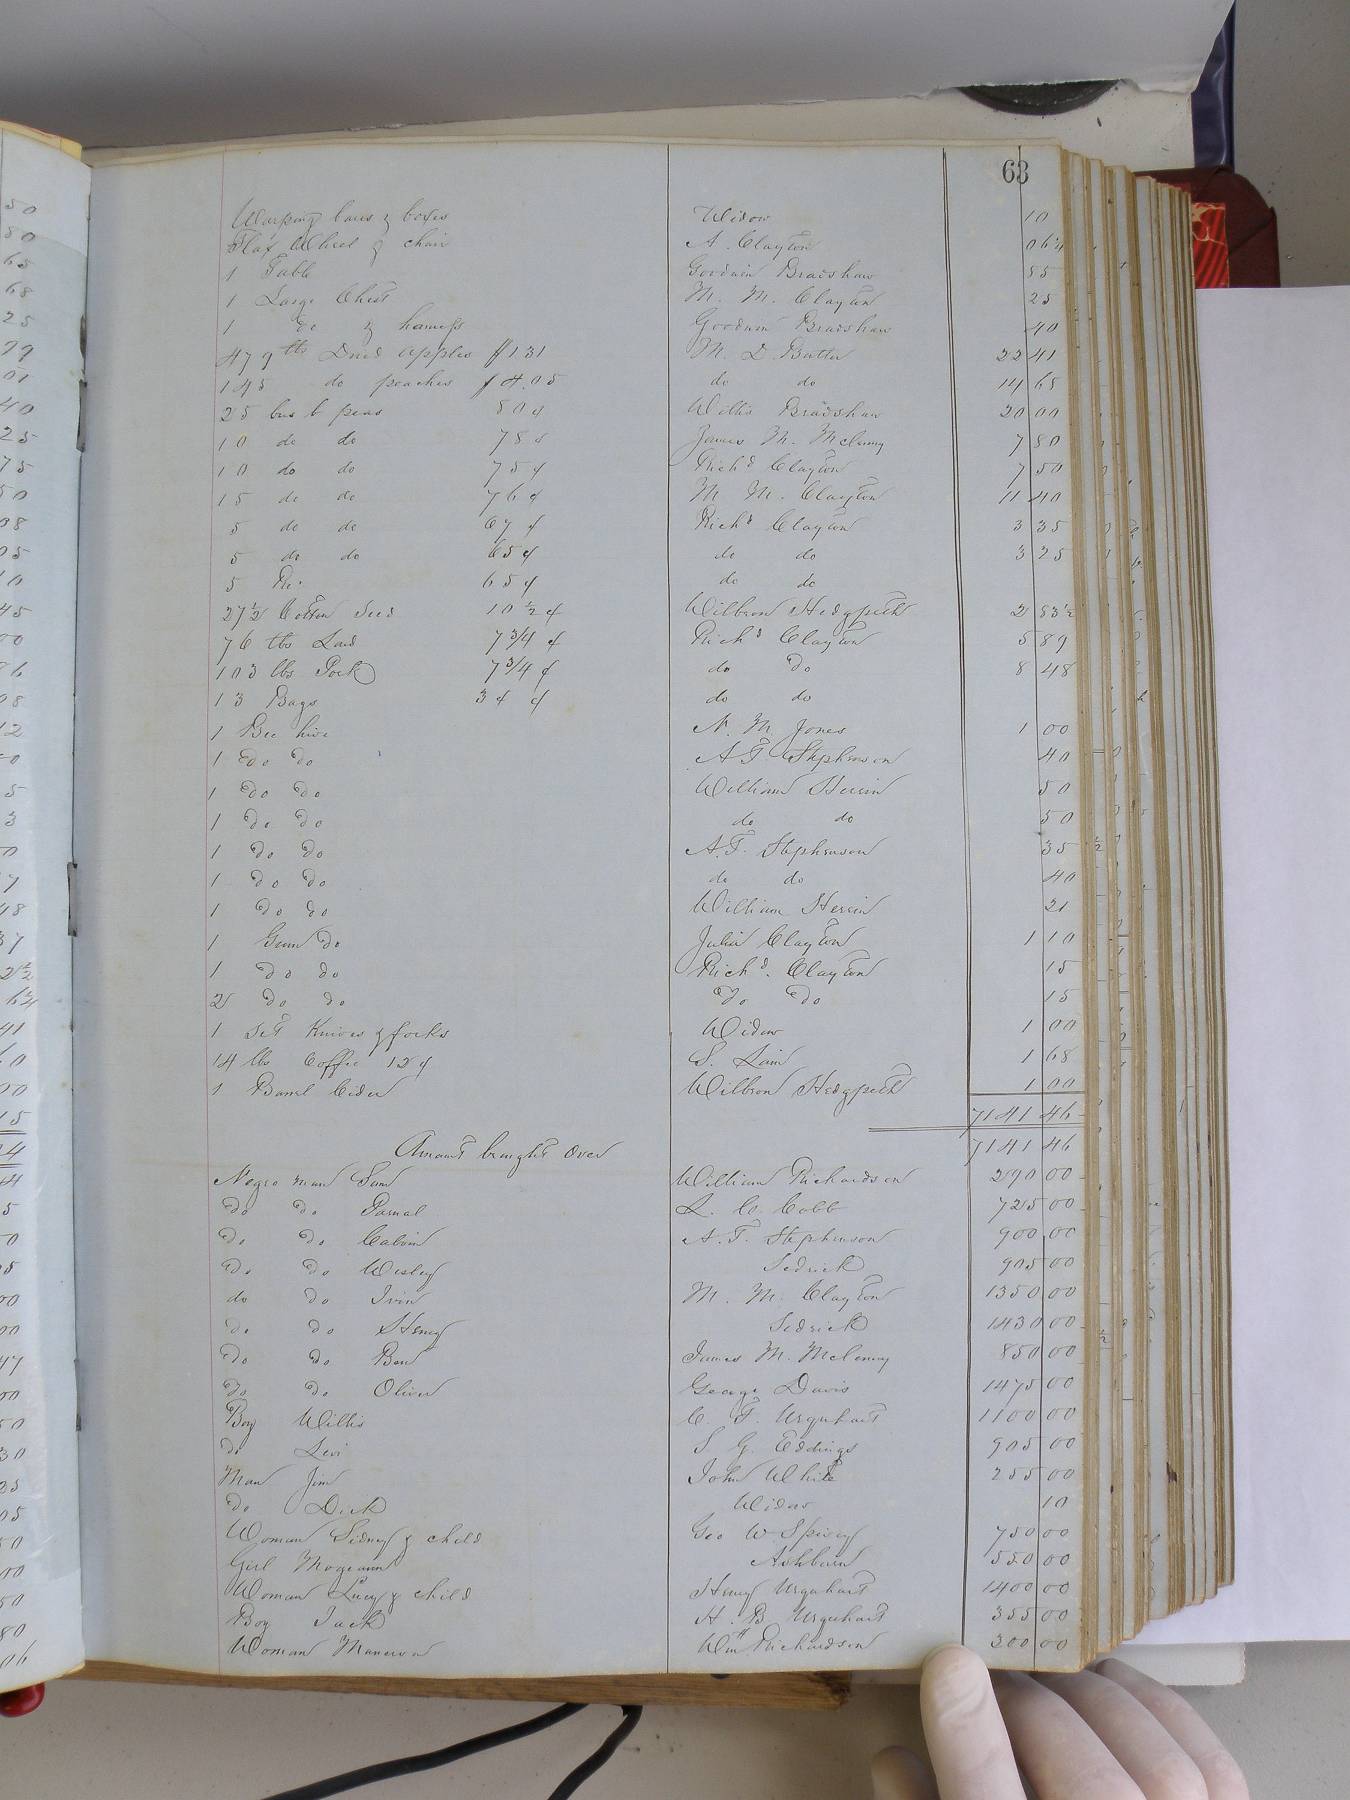 63
Warping bars & boxes Widow 10
Flax Wheel & chair A. Clayton 06¼
1 Table Goodwin Bradshaw 55
1 Large Chest M. M. Clayton 25
1 do & hamess Goodwin Bradshaw 40
479 lbs Dried apples $1 31 M. D. Butler 22 41
145 do peaches $4.05 do do 14 65
25 bus b peas 80¢ Willis Bradshaw 20 00
10 do do 78¢ James M. McLenny 7 80
10 do do 75¢ Richd Clayton 7 50
15 do do 76¢ M. M. Clayton 11 40
5 do do 67¢ Richd Clayton 3 35
5 do do 65¢ do do 3 25
5 65¢ do do
27½ Cotton Seed 10½¢ Wilbron Hedgpeth 2 83½
76 lbs Lard 7¾¢ Richd Clayton 5 89
103 lbs Pork 7¾¢ do Do 8 48
13 Bags do do
1 Bee hive N. M. Jones 1 00
1 Do Do A T Stephenson 40
1 Do Do William Herrin 50
1 Do Do do do 50
1 Do Do A. T. Stephenson 35
1 Do Do do do 40
1 Do Do William Herrin 21
1 Gum Do Julia Clayton 1 10
1 Do Do Richd. Clayton 15
2 Do Do Do Do 15
1 Set Knives & forks Widow 1 00
14 lbs Coffee 12¢ S. Lain 1 68
1 Barrel Cider Wilbron Hedgpeth 1 00
7141 46
Amount brought Over 7141 46
Negro man Sam William Richardson 290 00
Do Do Parnal L. C. Cobb 725 00
Do Do Calvin A. T. Stephenson 900 00
Do Do Wesley Sedrick 905 00
do Do Irvin M. M. Clayton 1350 00
Do Do Henry Sedrick 1430 00
Do Do Ben James M. McLenny 850 00
Do Do Oliver George Davis 1475 00
Boy Willis C. F. Urquhart 1100 00
do Levi S. G. Eddings 905 00
Man Jim John White 255 00
Do Dick Widow 10
Woman Sidney & child Geo W Spivey 750 00
Girl Mogeann Ashburn 550 00
Woman Lucy & child Henry Urquhart 1400 00
Boy Jack H. B Urquhart 355 00
Woman Manerva Wm H Richardson 300 00